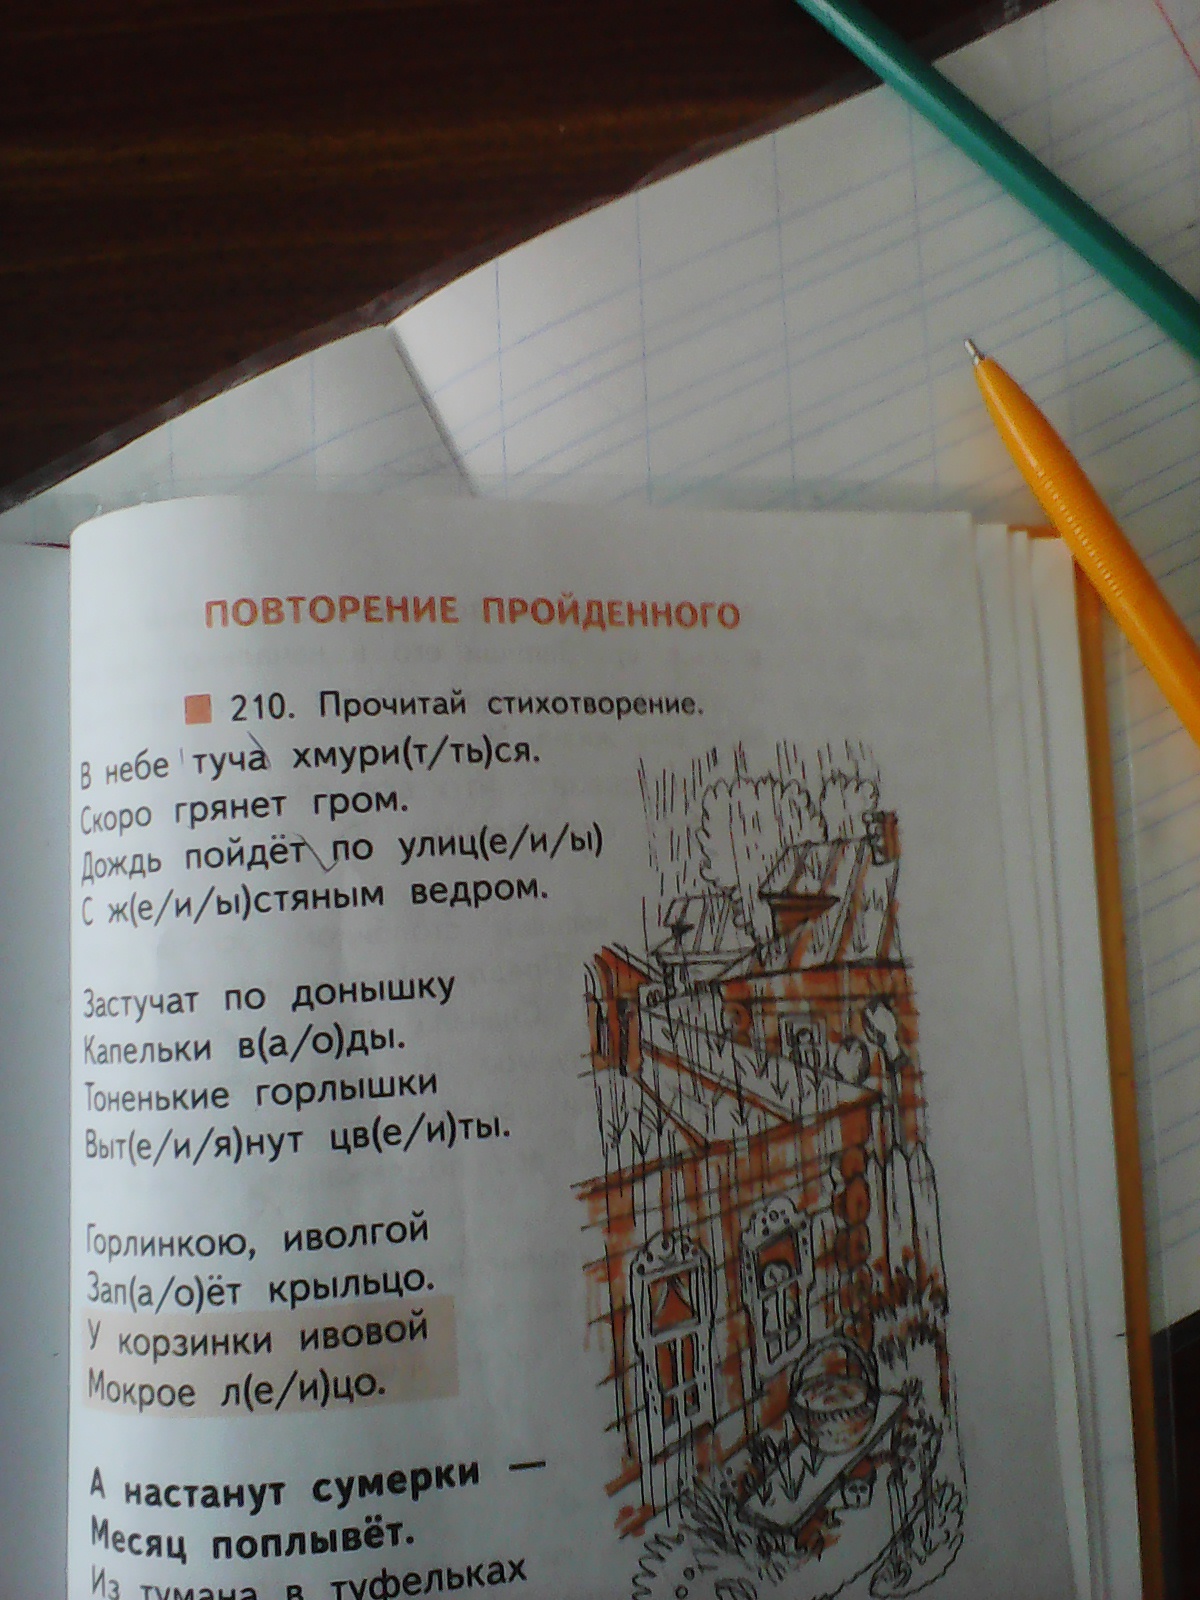 ПОВТОРЕНИЕ ПРОЙДЕННОГО
210. Прочитай стихотворение.
В небе туча хмури(т/ть)ся.
Скоро грянет гром.
Дождь пойдёт по улиц(е/и/ы)
С ж(е/и/ы)стяным ведром.
Застучат по донышку
Капельки в(а/о)ды.
Тоненькие горлышки
Выт(е/и/я)нут цв(е/и)ты.
Горлинкою, иволгой
Зап(а/о)ёт крыльцо.
У корзинки ивовой
Мокрое л(е/и)цо.
А настанут сумерки —
Месяц поплывёт.
Из тумана в туфельках